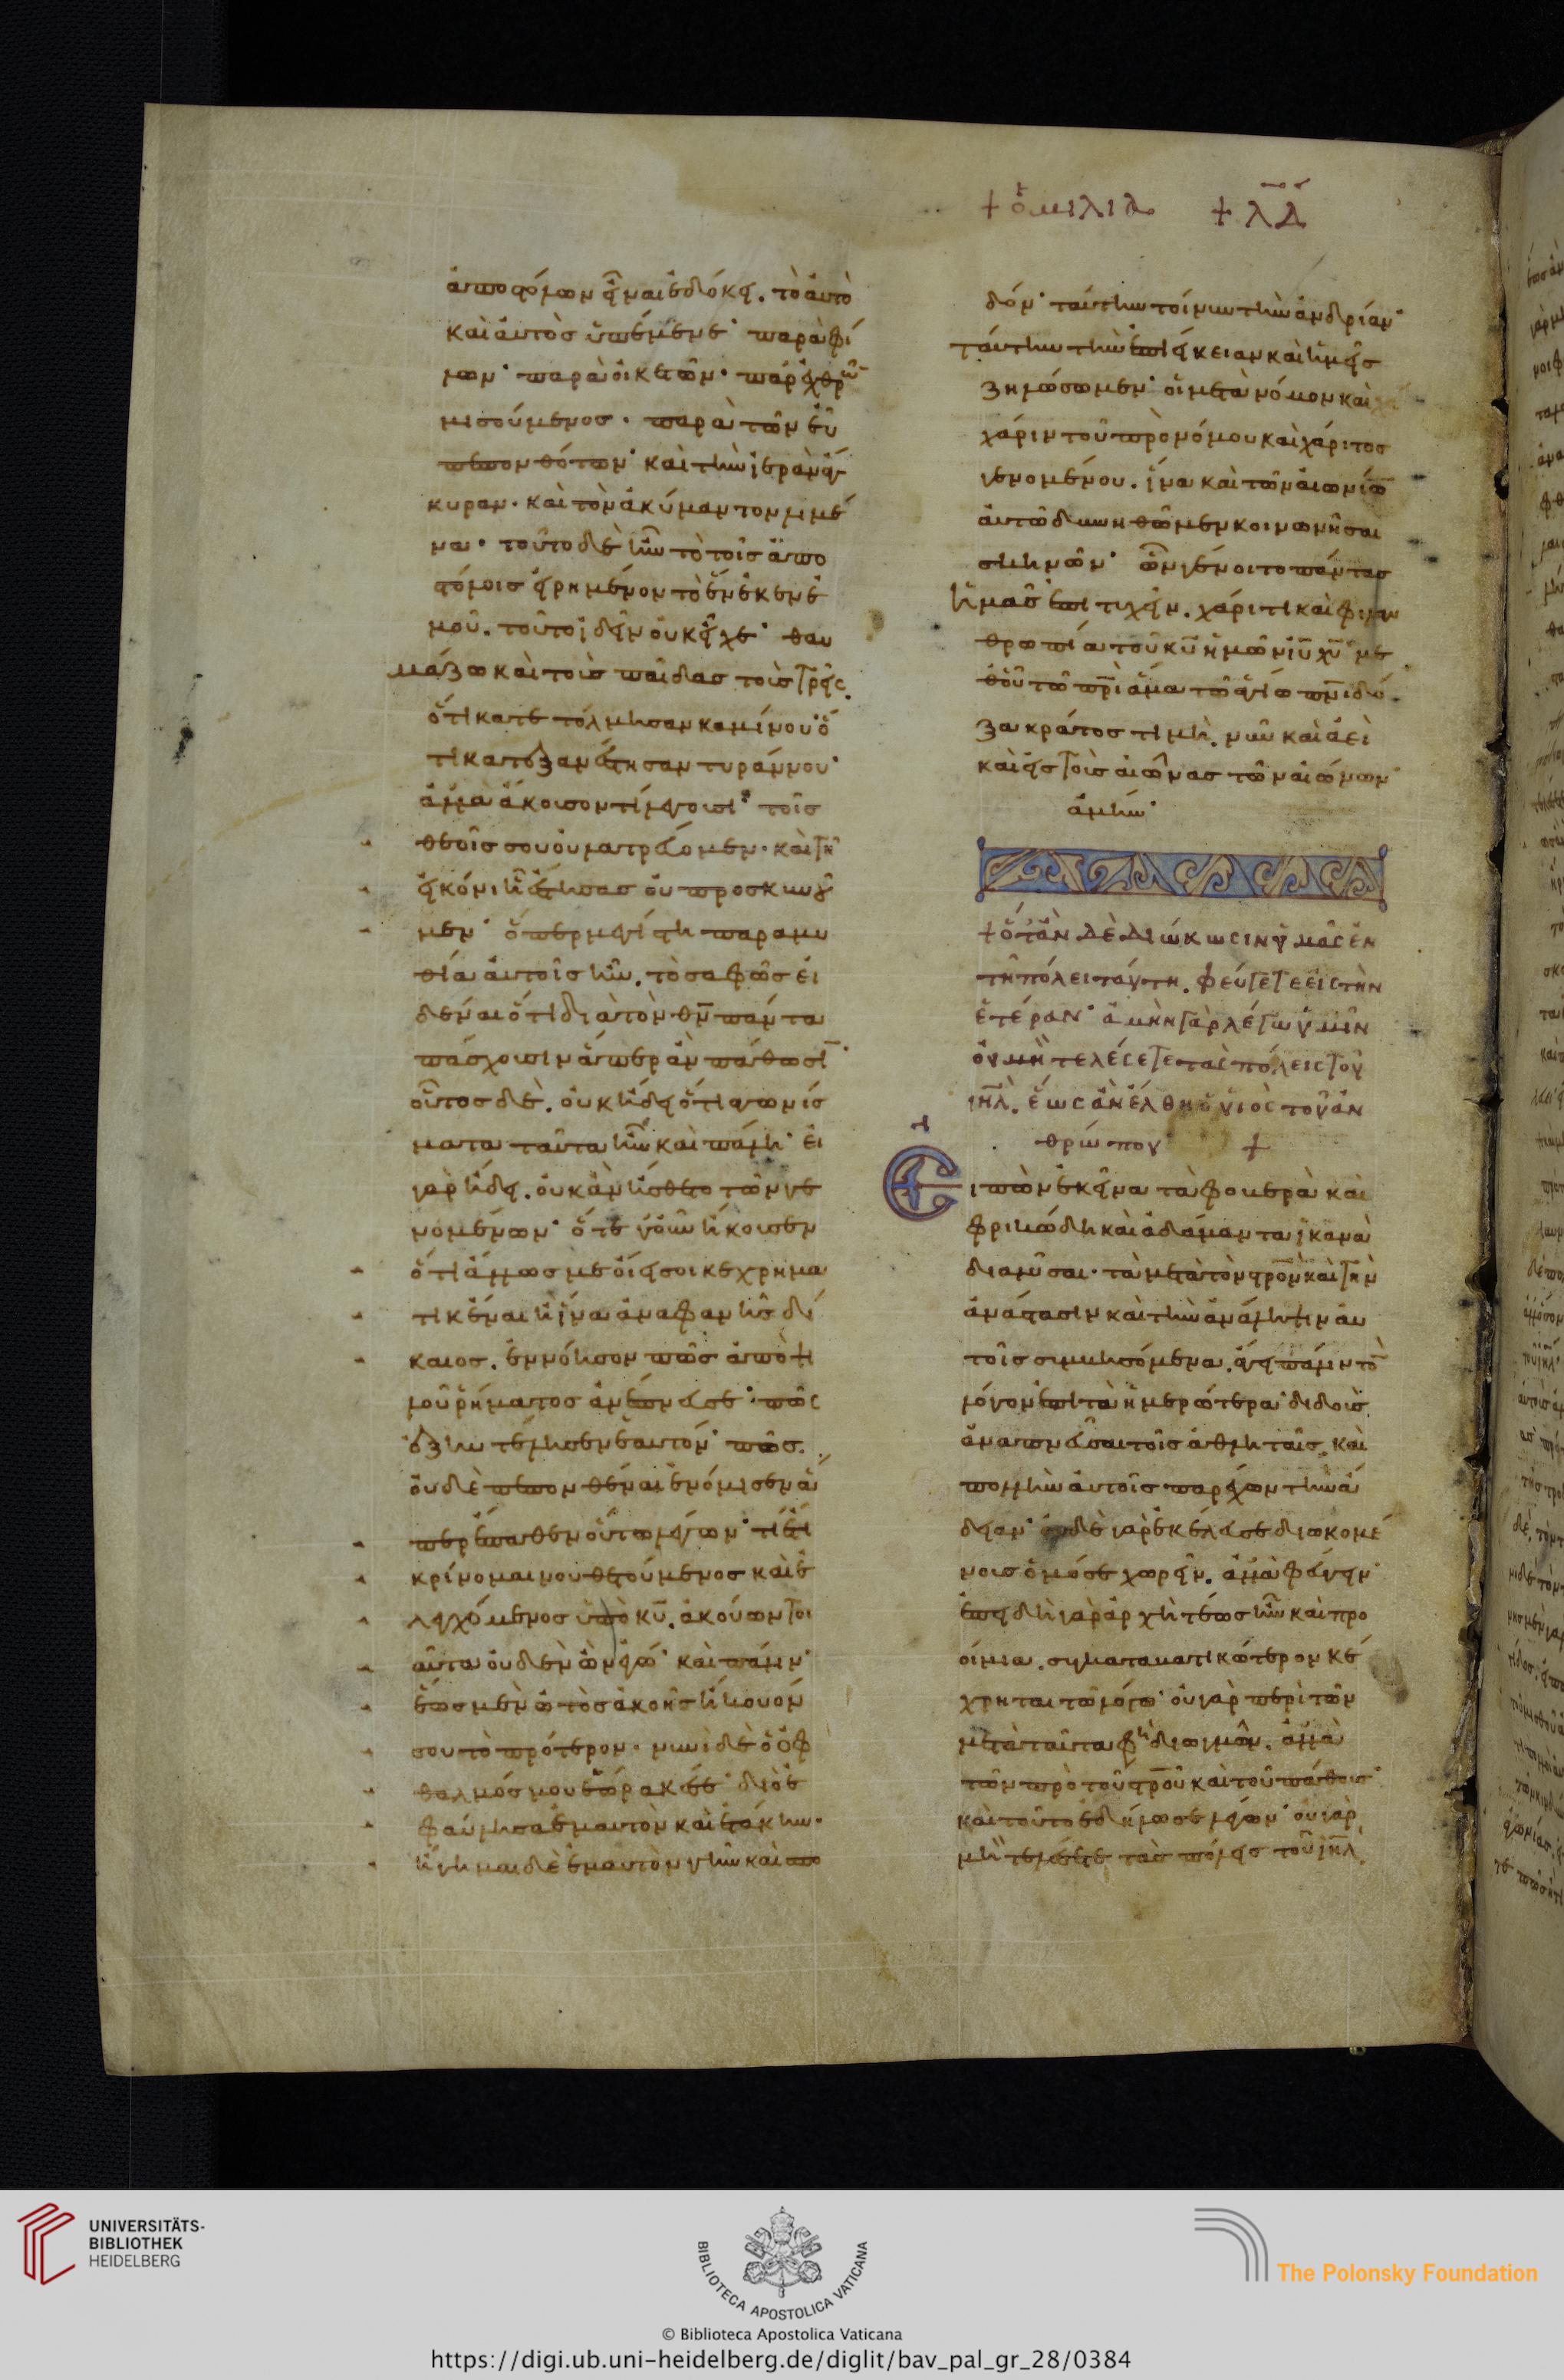 + ὁμιλία + λδ
ἀποστόλων εἶναι ἐδόκει. τὸ αὐτὸ
καὶ αὐτὸς ὑπέμενε· παρὰ φί
λων· παρὰ οἰκετῶν· παρ' ἐχθρῶν
μισούμενος· παρὰ τῶν εὖ
πεπονθότων· καὶ τὴν ἱερὰν ἄγ
κυραν· καὶ τὸν ἀκύμαντον λιμέ
να· τοῦτο δὲ ἦν τὸ τοῖς ἀπο
στόλοις εἰρημένον τὸ ἕνεκεν ἐ
μοῦ. τοῦτο ἰδεῖν οὐκ εἶχε· θαυ
μάζω καὶ τοὺς παῖδας τοὺς τρεῖς.
ὅτι κατετόλμησαν καμίνου· ὅ
τι κατεξανέστησαν τυράννου·
ἀλλὰ ἄκουσον τί λέγουσι· τοῖς
θεοῖς σου οὐ λατρεύομεν· καὶ τῇ
εἰκόνι ᾗ ἔστησας οὐ προσκυνοῦ
μεν· ὅπερ μεγίστη παραμυ
θία αὐτοῖς ἦν. τὸ σαφῶς εἰ
δέναι ὅτι διὰ τὸν θν πάντα
πάσχουσιν ἅπερ ἂν πάθωσι·
οὗτος δὲ. οὐκ ᾔδει ὅτι ἀγωνίσ
ματα ταῦτα ἦν καὶ πάλη· εἰ
γὰρ ᾔδει. οὐκ ἂν ᾔσθετο τῶν γε
νομένων· ὅτε γοῦν ἤκουσεν
ὅτι ἄλλως με οἴει σοι κεχρημα
τικέναι ἢ ἵνα ἀναφανῇς δί
καιος. ἐννόησον πῶς ἀπὸ ψι
λοῦ ῥήματος ἀνέπνευσε· πῶς
ἐξηυτέλησεν ἑαυτόν· πῶς.
οὐδὲ πεπονθέναι ἐνόμισεν ἅ
περ ἔπαθεν οὕτω λέγων· τί ἔτι
κρίνομαι νουθετούμενος καὶ ἐ
λεγχόμενος ὑπὸ κυ. ἀκούων τοι
αῦτα οὐδὲν ὢν ἐγώ· καὶ πάλιν·
ἕως μὲν ὠτὸς ἀκοῆς ἤκουόν
σου τὸ πρότερον· νυνὶ δὲ ὁ ὀφ
θαλμός μου ἑώρακέ σε· διὸ ἐ
φαύλησα ἐμαυτὸν καὶ ἐτάκην·
ἥγημαι δὲ ἐμαυτὸν γῆν καὶ σπο
δόν· ταύτην τοίνυν τὴν ἀνδρίαν·
ταύτην τὴν ἐπιείκειαν καὶ ἡμεῖς
ζηλώσωμεν· οἱ μετὰ νόμον καὶ
χάριν τοῦ πρὸ νόμου καὶ χάριτος
γενομένου. ἵνα καὶ τῶν αἰωνίων
αὐτῷ δυνηθῶμεν κοινωνῆσαι
σκηνῶν· ὧν γένοιτο πάντας
ἡμᾶς ἐπιτυχεῖν. χάριτι καὶ φιλαν
θρωπίᾳ τοῦ κυ ἡμῶν ιυ χυ· με
θ' οὗ τῷ πρι ἅμα τῷ ἁγίῳ πνι δό
ξα κράτος τιμὴ. νῦν καὶ ἀεὶ
καὶ εἰς τοὺς αἰῶνας τῶν αἰώνων·
ἀμήν·
+ ὅταν δὲ διώκωσιν ὑμᾶς ἐν
τῇ πόλει ταύτῃ. φεύγετε εἰς τὴν
ἑτέραν· ἀμὴν γὰρ λέγω ὑμῖν
οὐ μὴ τελέσετε τὰς πόλεις τοῦ
ιηλ. ἕως ἂν ἔλθῃ ὁ υἱὸς τοῦ ἀν
θρώπου +
Εἰπὼν ἐκεῖνα τὰ φοβερὰ καὶ
φρικώδη καὶ ἀδάμαντα ἱκανὰ
διαλῦσαι· τὰ μετὰ τὸν σταυρον καὶ τὴν
ἀνάστασιν καὶ τὴν ἀνάληψιν αὐ
τοῖς συμβησόμενα. ἄγει πάλιν τὸν
λόγον ἐπὶ τὰ ἡμερώτερα· διδοὺς
ἀναπνεῦσαι τοῖς ἀθληταῖς. καὶ
πολλὴν αὐτοῖς παρέχων τὴν ἄ
δειαν· οὐδὲ γὰρ ἐκέλευσε διωκομέ
νοις ὁμόσε χωρεῖν. ἀλλὰ φεύγειν·
ἐπειδὴ γὰρ ἀρχὴ τέως ἦν καὶ προ
οίμια. συγκαταβατικώτερον κέ
χρηται τῷ λόγῳ· οὐ γὰρ περὶ τῶν
μετὰ ταῦτα φη διωγμῶν. ἀλλὰ
τῶν πρὸ τοῦ σταυρου καὶ τοῦ πάθους·
καὶ τοῦτο ἐδήλωσε λέγων· οὐ γὰρ
μὴ τελέσετε τὰς πόλεις τοῦ ιηλ.
UNIVERSITÄTS-
BIBLIOTHEK
HEIDELBERG
BIBLIOTECA APOSTOLICA VATICANA
The Polonsky Foundation
© Biblioteca Apostolica Vaticana
https://digi.ub.uni-heidelberg.de/diglit/bav_pal_gr_28/0384